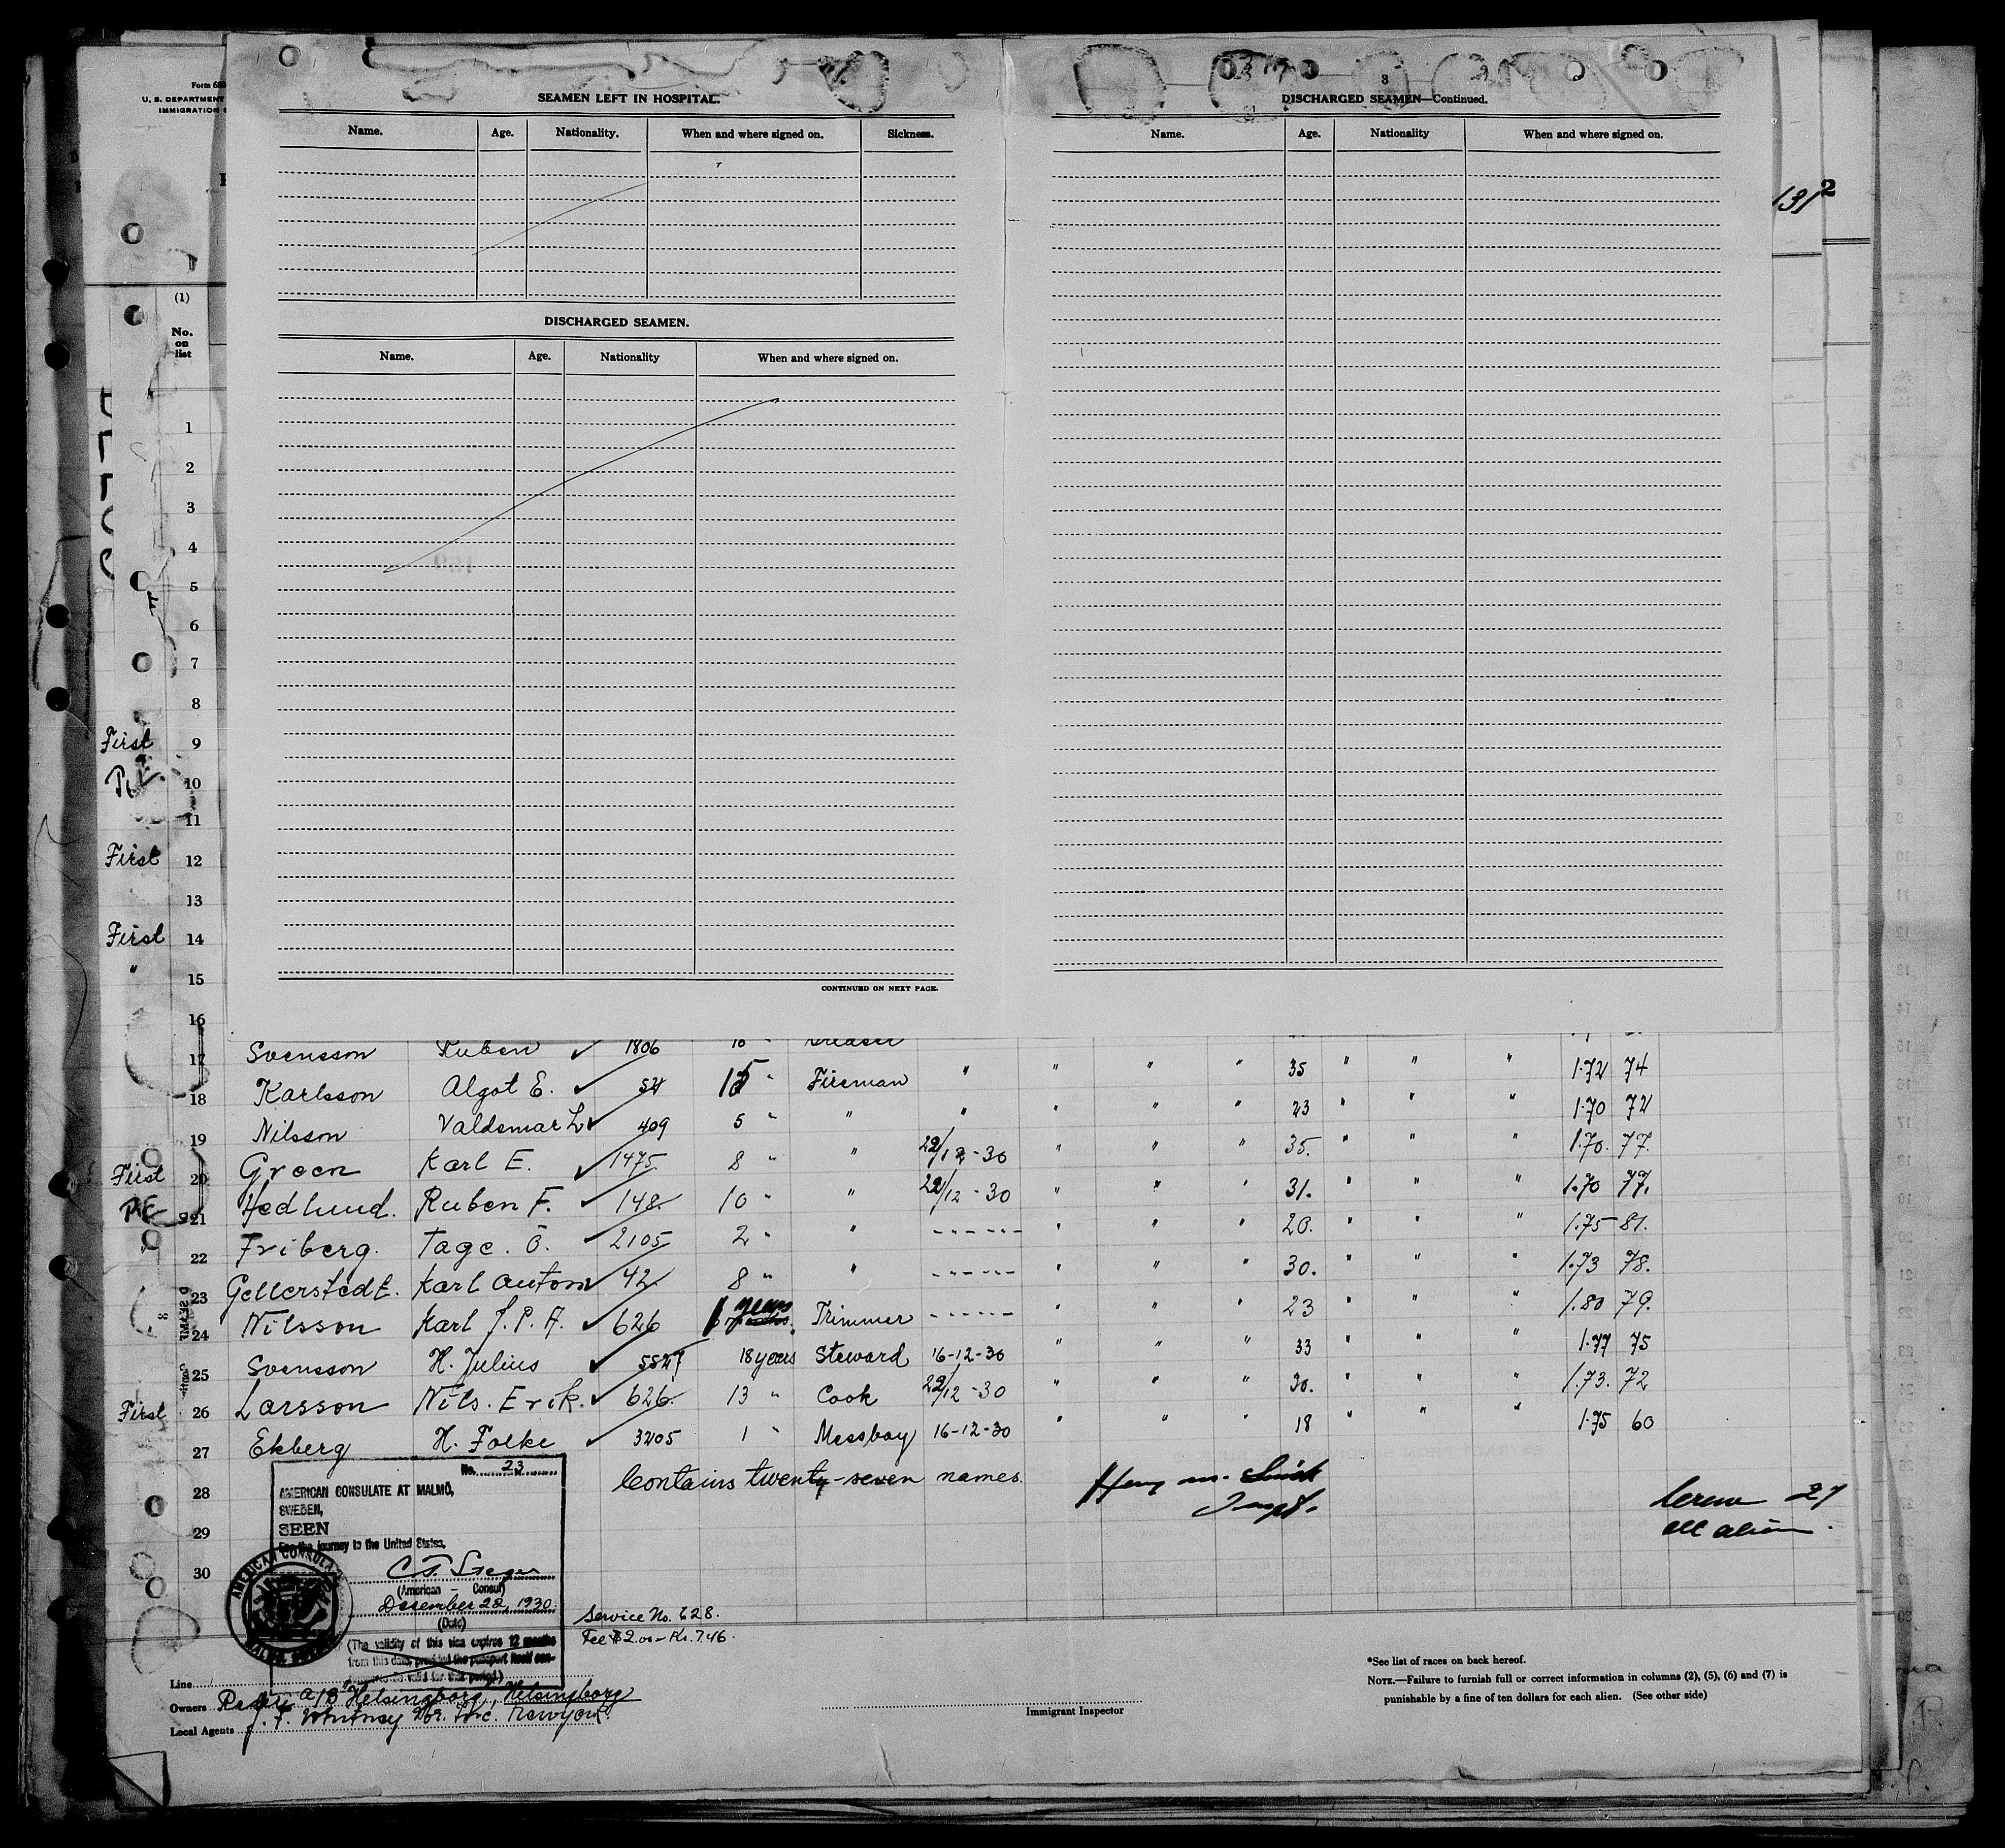 Form 680
U. S. DEPARTMENT
IMMIGRATION
SEAMEN LEFT IN HOSPITAL.
Name. Age. Nationality. When and where signed on. Sickness.
DISCHARGED SEAMEN.
Name. Age. Nationality When and where signed on.
CONTINUED ON NEXT PAGE.
3
DISCHARGED SEAMEN—Continued.
Name. Age. Nationality When and where signed on.
(1)
No.
on
list
1
2
3
4
5
6
7
8
First 9
10
11
First 12
13
First 14
" 15
16
17 Svensson Ruben ✓ 1806
18 Karlsson Algot E. ✓ 54 15 " Fireman " " " " 35 " " " 1.72 74
19 Nilsson Valdemar L ✓ 409 5 " " " " " " 23 " " " 1.70 72
First 20 Green Karl E. ✓ 1475 8 " " 22/12-30 " " " 35. " " " 1.70. 77.
21 Hedlund. Ruben F. ✓ 148. 10 " " 22/12-30 " " " 31. " " " 1.70 77.
22 Friberg. Tage. Ö. ✓ 2105 2 " " ------ " " " 20. " " " 1.75 81.
23 Gellerstedt. Karl Anton ✓ 42. 8 " " ------ " " " 30. " " " 1.73 78.
24 Nilsson Karl J. P. A. ✓ 626 1 years Trimmer ------ " " " 23 " " " 1.80 79.
25 Svensson H. Julius ✓ 5827 18 years Steward 16-12-30 " " " 33 " " " 1.77 75
First 26 Larsson Nils. Erik. ✓ 626. 13 " Cook 22/12-30 " " " 30. " " " 1.73. 72
27 Ekberg H. Folke ✓ 3205 1 " Messboy 16-12-30 " " " 18 " " " 1.75 60
28 Contains twenty-seven names.
29
30
Inspt.
Crew 27
all alien.
No. 23
AMERICAN CONSULATE AT MALMÖ,
SWEDEN,
SEEN
For the journey to the United States.
(American - Consul)
December 22, 1930.
(Date)
(The validity of this visa expires 12 months
from this date, provided the passport itself con-
tinues to be valid for that period.)
AMERICAN CONSULATE
MALMÖ, SWEDEN
Service No. 628.
Fee $2.00 - Kr. 7.46.
Line
Owners Rederi A/B Helsingborg, Helsingborg
Local Agents J. F. Whitney & Co. Inc. New York.
Immigrant Inspector
*See list of races on back hereof.
NOTE.—Failure to furnish full or correct information in columns (2), (5), (6) and (7) is
punishable by a fine of ten dollars for each alien. (See other side)